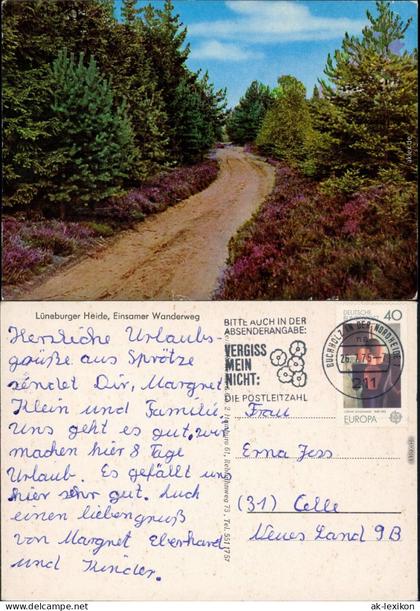 Lüneburger Heide, Einsamer Wanderweg
Herzliche Urlaubs-
grüße aus Sprötze
sendet Dir, Margret
Klein und Familie.
Uns geht es gut, wir
machen hier 8 Tage
Urlaub. Es gefällt uns
hier sehr gut. Auch
einen lieben gruß
von Margret Eberhard
und Kinder.
BITTE AUCH IN DER
ABSENDERANGABE:
VERGISS
MEIN
NICHT:
DIE POSTLEITZAHL
DEUTSCHE
40
BUCHHOLZ IN DER NORDHEIDE
26.7.75-7
211
EUROPA CEPT
Frau
Erna Jess
(31) Celle
Neues Land 9B
© ak-lexikon.com